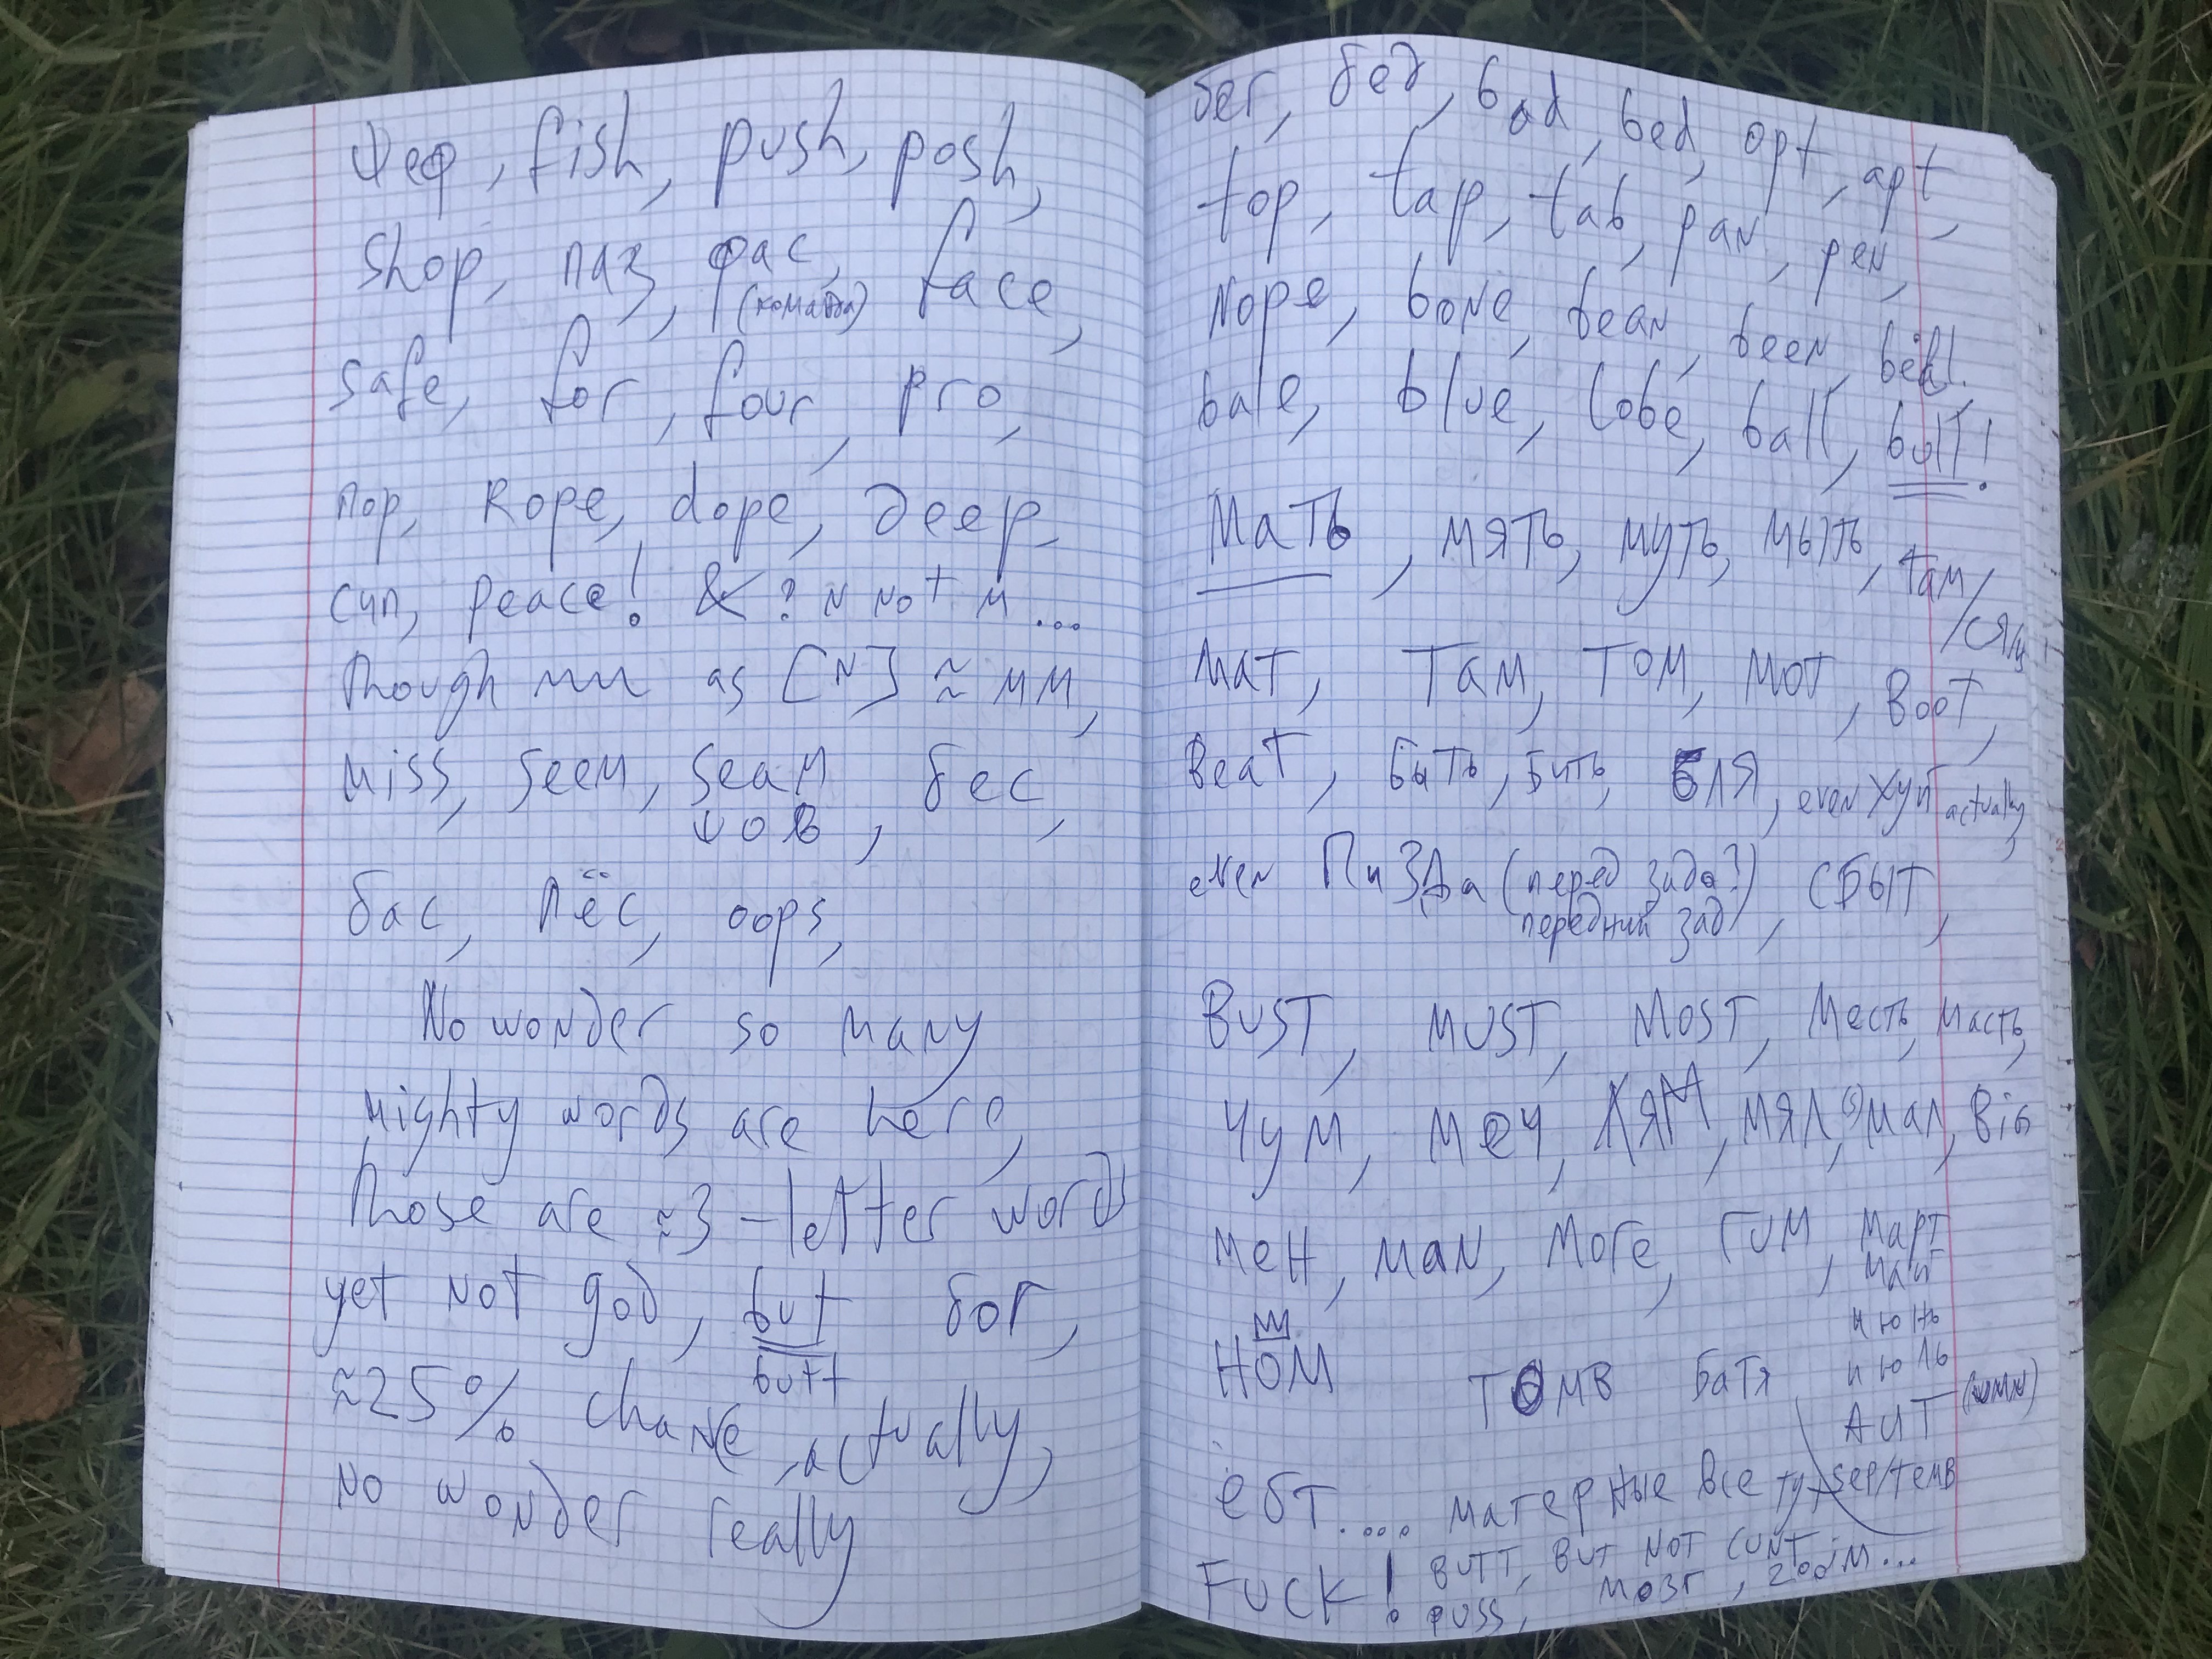 шеф, fish, push, posh,
shop, паз, фас, face,
(команда)
safe, for, four, pro,
пор, Rope, dope, deep,
суп, peace! & ? n not м ...
Though mn as [n] ≈ мм,
miss, seem, seam, бес,
бас, пёс, oops,
No wonder so many
mighty words are here,
those are ≈ 3-letter words
yet not god, but бог,
butt
≈ 25% chance, actually,
no wonder really
бег, бед, bad, bed, opt, apt,
top, tap, tab, pan, pen,
Nope, bone, bean, been
bale, blue, lobe, ball, bull!
Мать, мять, муть, мыть, там/
мат, Там, Том, мот, Воот,
Beat, быть, бить, бля, even хуй actually,
even ПиЗДа (перед зада?)
передний зад), сбыт,
Bust, must, most, месть, масть,
Чум, меч, ЛяЯ, мял(я), мал, Big
мен, man, more, Гим, март
май
ном Томв батя июнь
июль
АИТ
ебт.... матерные все тут septемв
Fuck! butt, but not cunt...
puss, мозг, zodim...